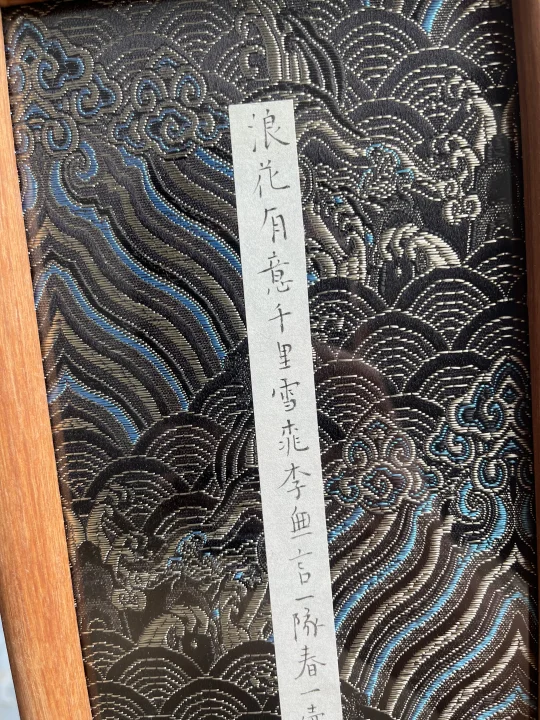 浪花有意千里雪桃李無言一隊春一